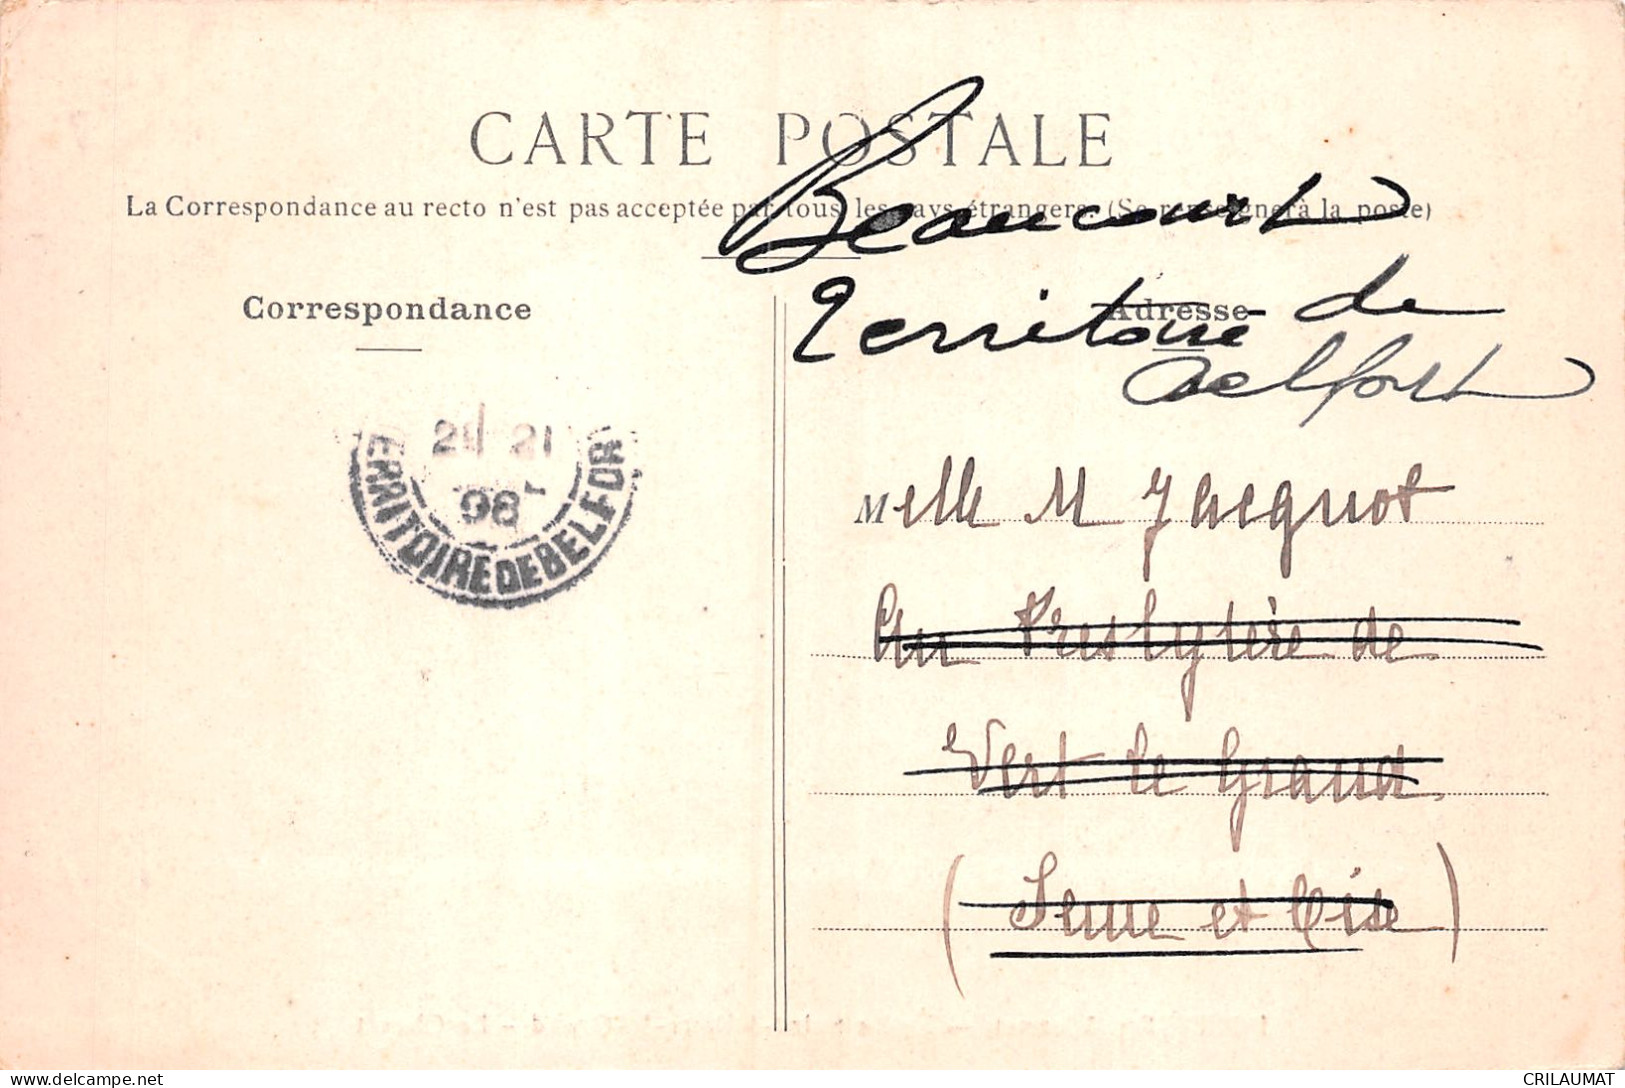 CARTE POSTALE
La Correspondance au recto n'est pas acceptée par tous les pays étrangers. (Se renseigner à la poste)
Beaucourt
Territoire de
Belfort
Correspondance
Adresse
21
98
TERRITOIRE DE BELFORT
Melle M Jacquot
Au Presbytère de
Vert le Grand
(Seine et Oise)
delcampe.net
CRILAUMAT